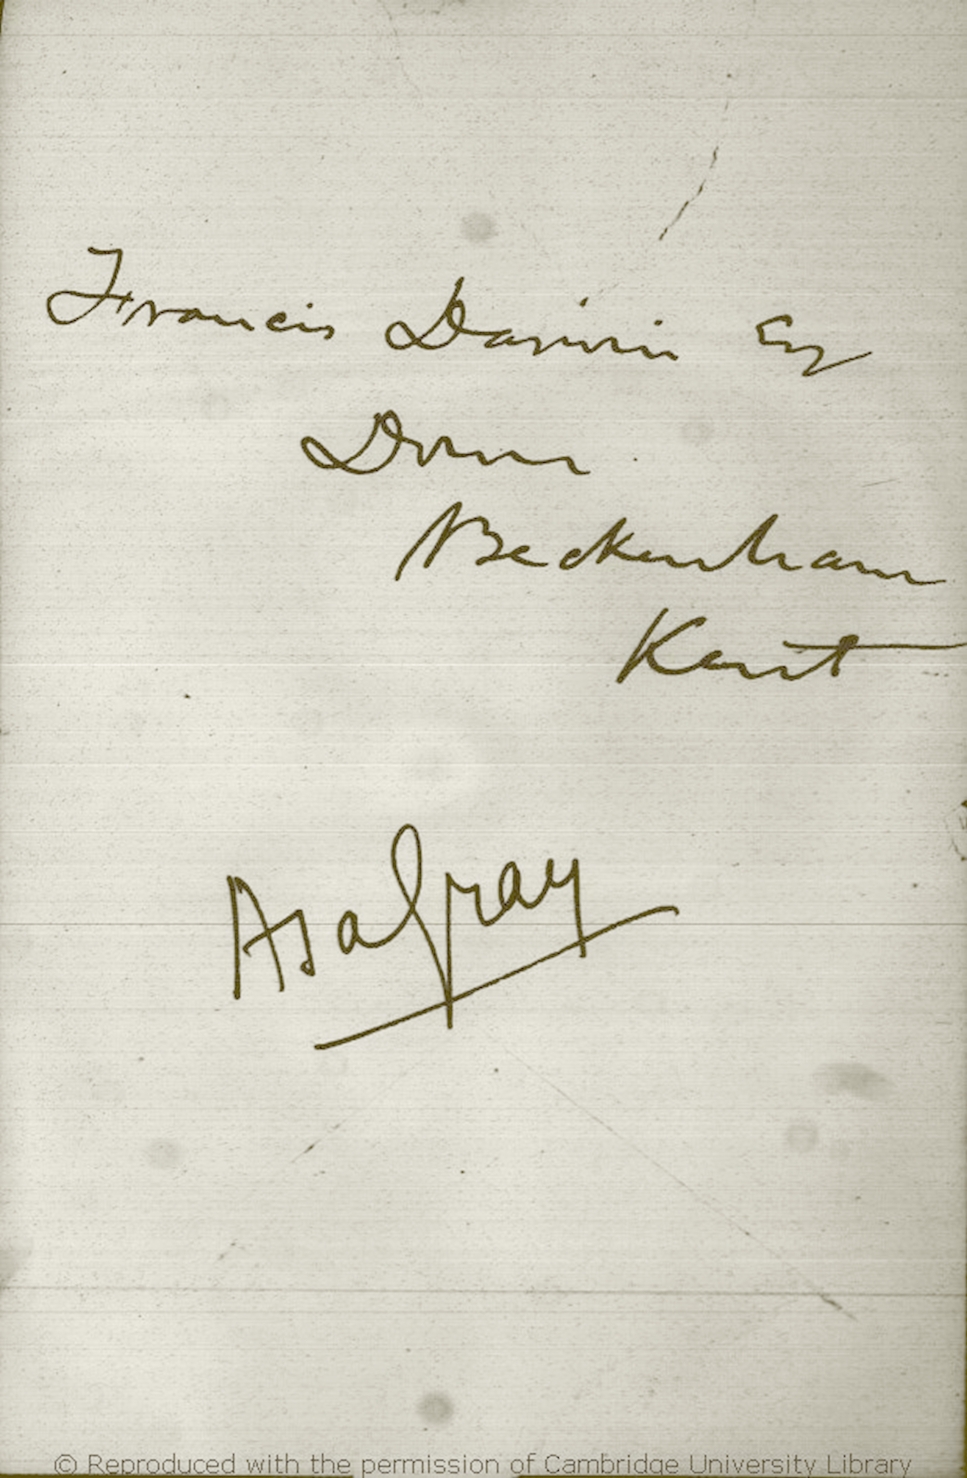 Francis Darwin Esq
Down.
Beckenham
Kent
Asa Gray
© Reproduced with the permission of Cambridge University Library